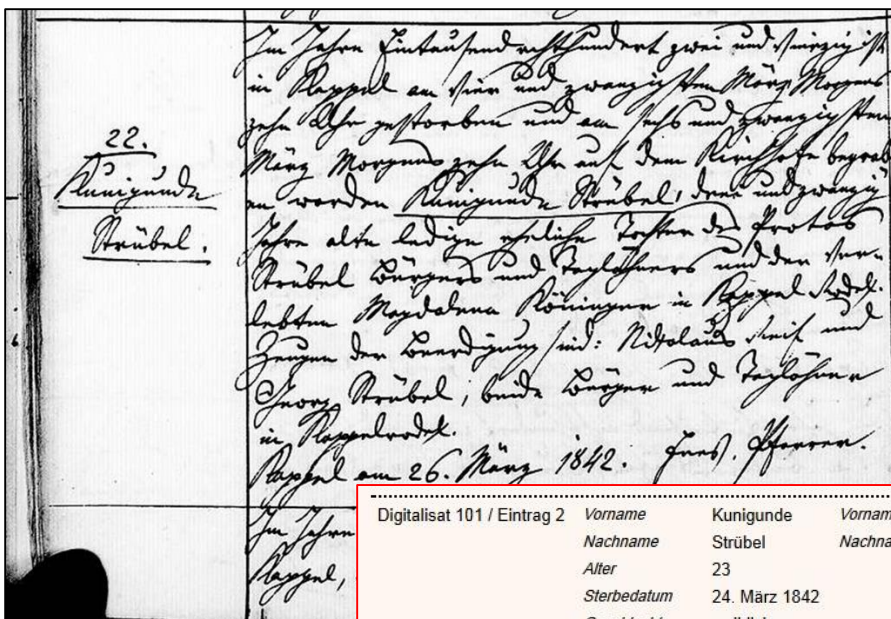 22.
Kunigunde
Strübel.
Im Jahre Eintausend achthundert zwei und vierzig ist
in Kappel am vier und zwanzigsten März Morgens
zehn Uhr gestorben und am sechs und zwanzigsten
März Morgens zehn Uhr auf dem Kirchhofe begrab
en worden Kunigunde Strübel, drei und zwanzig
Jahre alte ledige eheliche Tochter des Protas
Strübel Bürgers und Taglöhners und der ver-
lebten Magdalena Köninger in Kappelrodek.
Zeugen der Beerdigung sind: Nikolaus und
Georg Strübel, beide Bürger und Taglöhner
in Kappelrodek.
Kappel am 26. März 1842. Pfarrer.
Im Jahre
Kappel,
Digitalisat 101 / Eintrag 2 Vorname Kunigunde Vornam
Nachname Strübel Nachna
Alter 23
Sterbedatum 24. März 1842